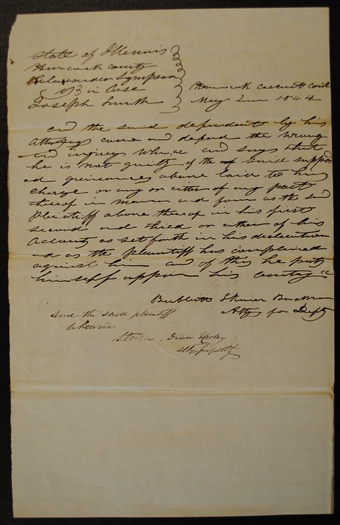 State of Illinois
Hancock county
Alexander Sympson
vs in Case
Joseph Smith
Hancock Circuit Court
May Term 1844
And the said defendant by his
Attorneys come and defend the wrong
and injury when &c and says that
he is not guilty of the said suppos
ed grievances above laid to his
charge or any or either of any part
thereof in manner and form as the said
Plaintiff above thereof in his first
second and third or either of his
Accounts as set forth in his declaration
and as the plaintiff has complained
against him and of this he puts
himself upon his country &c
Skinner
Atty for Deft
And the said plaintiff
likewise